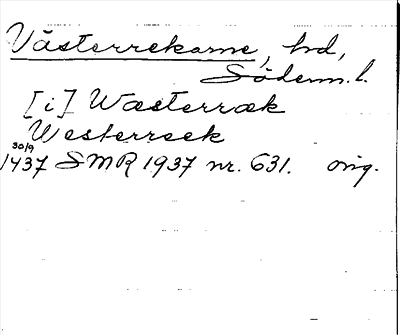 Västerrekarne, hd,
Söderm. l.
[i] Wæsterræk
Westerreek
30/9
1437 SMR 1937 nr. 631. orig.